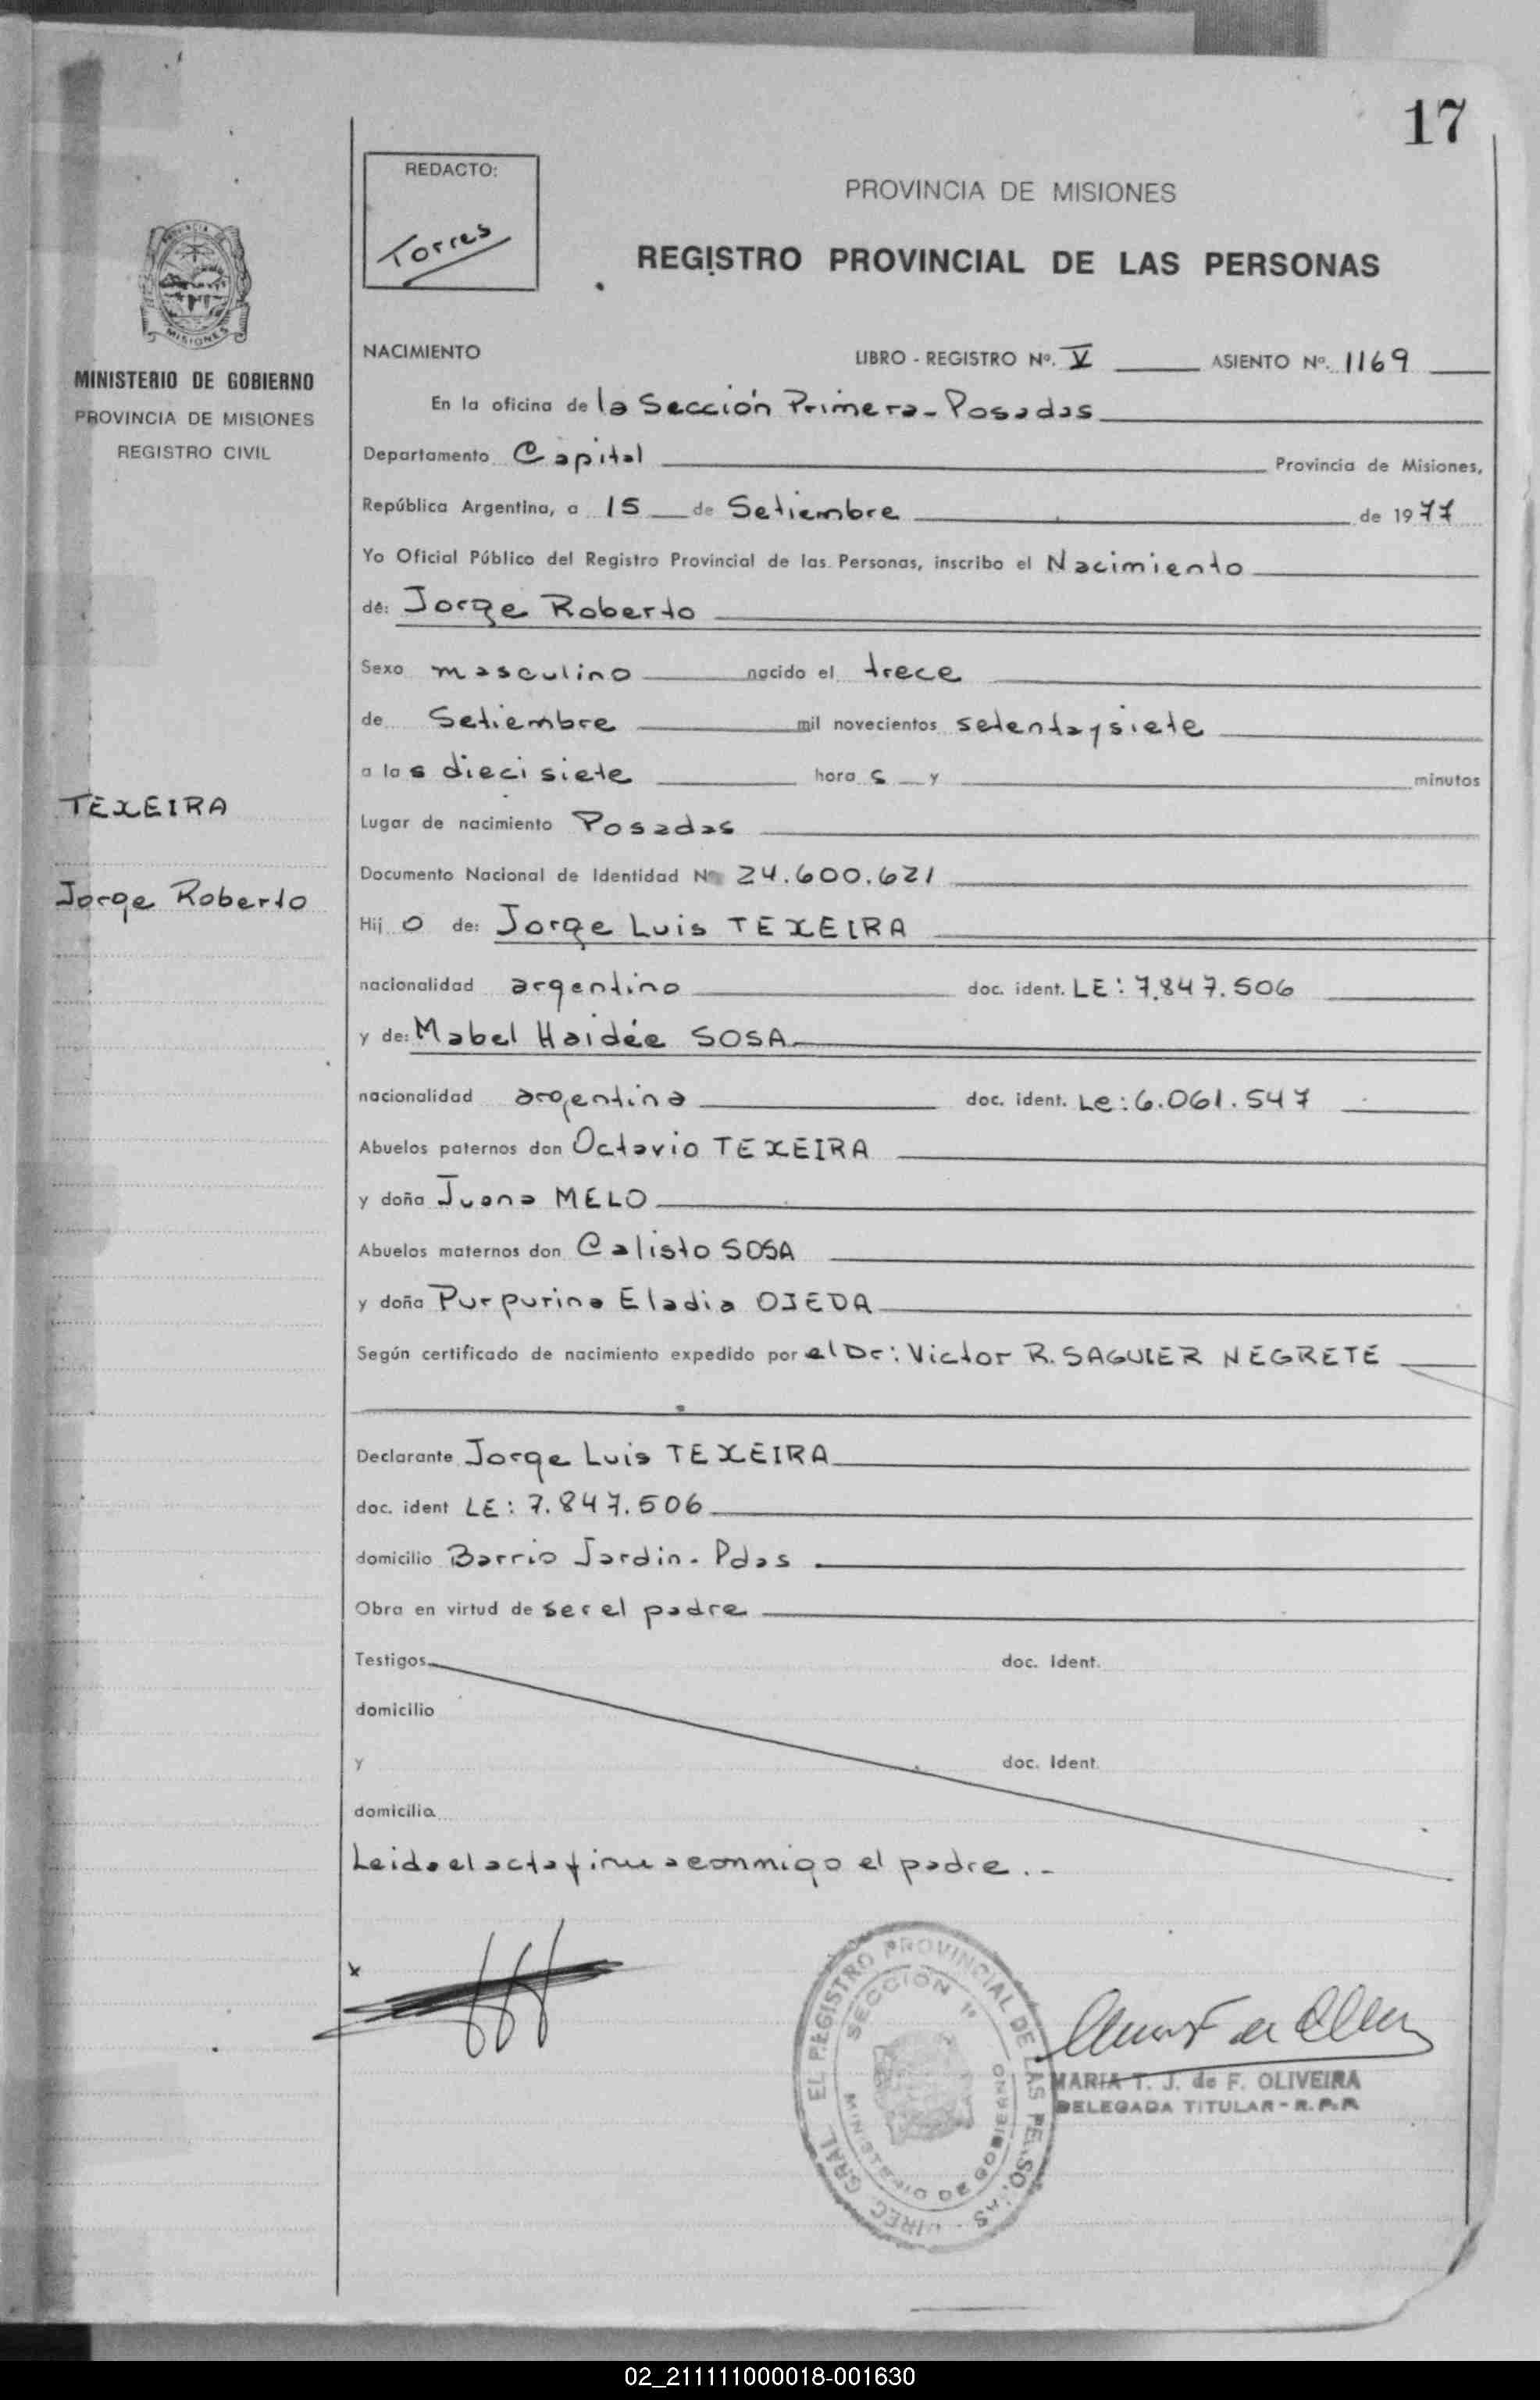 17
REDACTO:
Torres
PROVINCIA DE MISIONES
REGISTRO PROVINCIAL DE LAS PERSONAS
MISIONES
MINISTERIO DE GOBIERNO
PROVINCIA DE MISIONES
REGISTRO CIVIL
NACIMIENTO LIBRO - REGISTRO Nº. V ASIENTO Nº. 1169
En la oficina de la Sección Primera - Posadas
Departamento Capital Provincia de Misiones,
República Argentina, a 15 de Setiembre de 1977
Yo Oficial Público del Registro Provincial de las Personas, inscribo el Nacimiento
de: Jorge Roberto
Sexo masculino nacido el trece
de Setiembre mil novecientos setentaysiete
a las diecisiete horas y minutos
TEXEIRA
Lugar de nacimiento Posadas
Documento Nacional de Identidad Nº 24.600.621
Jorge Roberto
Hijo de: Jorge Luis TEXEIRA
nacionalidad argentino doc. ident. LE: 7.847.506
y de: Mabel Haidée SOSA
nacionalidad argentina doc. ident. Le: 6.061.547
Abuelos paternos don Octavio TEXEIRA
y doña Juana MELO
Abuelos maternos don Calisto SOSA
y doña Purpurina Eladia OJEDA
Según certificado de nacimiento expedido por el Dr: Victor R. SAGUIER NEGRETE
Declarante Jorge Luis TEXEIRA
doc. ident LE: 7.847.506
domicilio Barrio Jardin - Pdas
Obra en virtud de ser el padre
Testigos doc. Ident.
domicilio
y doc. Ident.
domicilio
Leida el acta firma conmigo el padre . -
x
DIREC. GRAL. EL REGISTRO PROVINCIAL DE LAS PERSONAS
SECCION 1ª
MINISTERIO DE GOBIERNO
MARIA T. J. de F. OLIVEIRA
DELEGADA TITULAR - R.P.P.
02_211111000018-001630